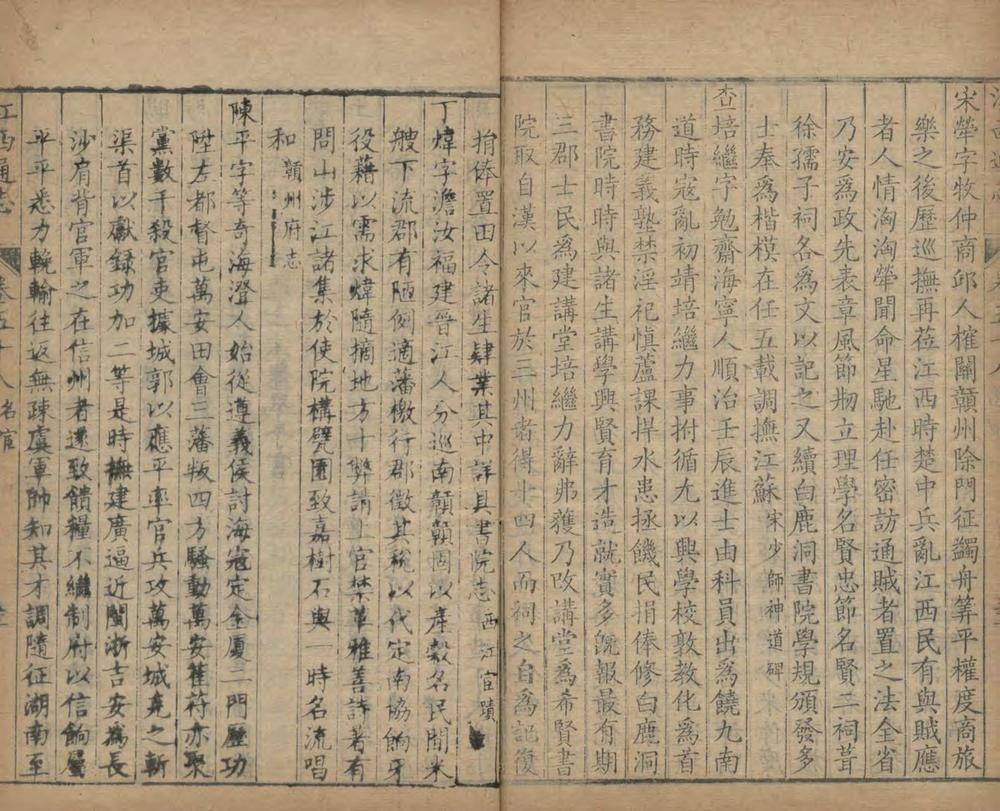 宋犖字牧仲商邱人榷關贛州除門征蠲舟筭平權度商旅
樂之後歷巡撫再莅江西時楚中兵亂江西民有與賊應
者人情洶洶犖聞命星馳赴任密訪通賊者置之法全省
乃安爲政先表章風節剏立理學名賢忠節名賢二祠葺
徐孺子祠各爲文以記之又續白鹿洞書院學規頒發多
士奉爲楷模在任五載調撫江蘇宋少師神道碑
培繼字勉齋海寧人順治壬辰進士由科員出爲饒九南
道時寇亂初靖培繼力事拊循尤以興學校敦教化爲首
務建義塾禁淫祀愼蘆課捍水患拯饑民捐俸修白鹿洞
書院時時與諸生講學興賢育才造就實多旣報最有期
三郡士民爲建講堂培繼力辭弗獲乃改講堂爲希賢書
院取自漢以來官於三州者得十四人而祠之自爲記復
捐俸置田令諸生肄業其中詳具書院志西江宦蹟
丁煒字澹汝福建晉江人分巡南贛贛固以產穀名民間米
艘下流郡有陋例適藩檄行郡徵其稅以代定南協餉牙
役藉以需求煒隨摘地方十弊請上官禁革雅善詩著有
問山涉江諸集於使院構甓園致嘉樹石與一時名流唱
和贛州府志
陳平字等奇海澄人始從遵義侯討海寇定金厦二門歷功
陞左都督屯萬安田會三藩叛四方騷動萬安萑苻亦聚
黨數千殺官吏據城郭以應平率官兵攻萬安城克之斬
渠首以獻錄功加二等是時撫建廣逼近閩浙吉安爲長
沙肩背官軍之在信州者遂致饋糧不繼制府以信餉屬
平平悉力輓輸往返無疎虞軍帥知其才調隨征湖南至
江西通志
卷五十八 名宦